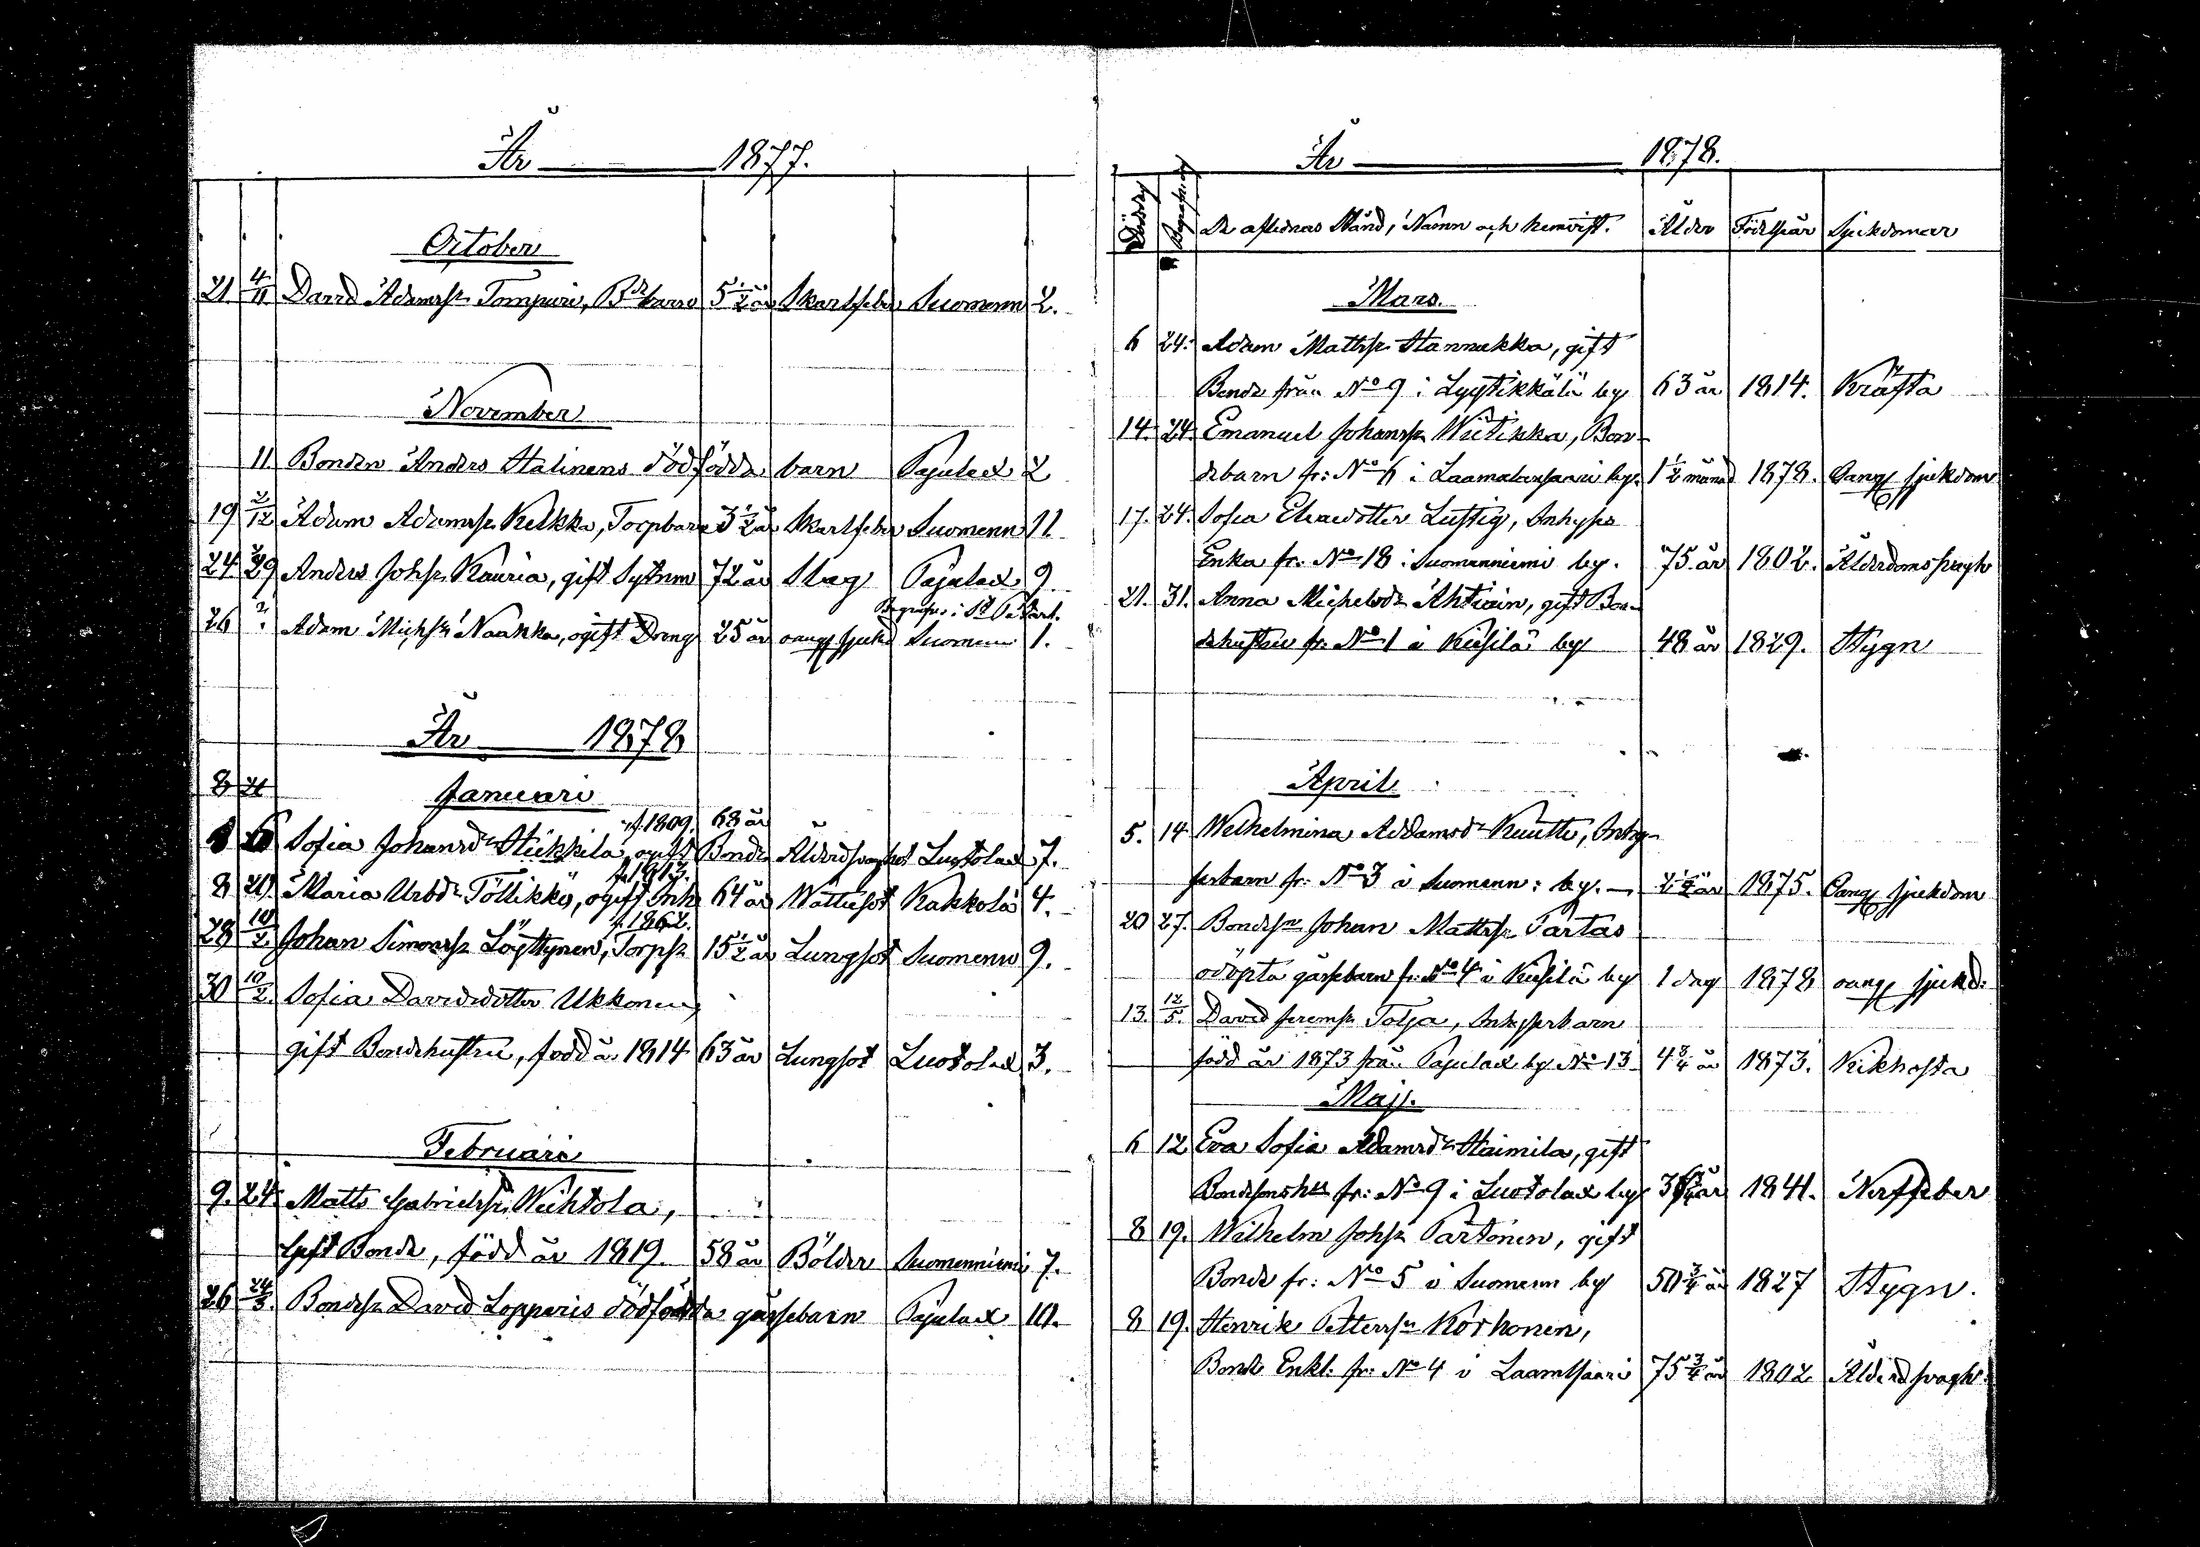 År 1877.
October
21 4/11 David Adamsn Tompuri, Bdebarn 5 1/2 år Skarlfeber Suomenn 2.
November
11 Bonden Anders Halinens dödfödda barn Pajulad 2
19 2/12 Adam Adamsn Kelkka, Torpbarn 3 1/2 år Skarlfeber Suomenn 11
24 29 Anders Johsn Kauria, gift Sytnm 72 år Slag Pajulad 9.
Begrafv: i St
26 ? Adam Michsn Naakka, ogift Dreng 25 år oangf sjukd Suomenn 1.
År 1878
8 21 Januari
f. 1809. 68 år
Sofia Johansdr Hükkilä, ogift Bonde Ålderdsvaghet Luotolad 7.
f. 1813.
8 20 Maria Urbdr Töllikkö, ogift Inh 64 år Wattusot Kakkola 4.
f. 1862.
28 10/2. Johan Simonssn Löyttynen, Torpsn 15 1/2 år Lungsot Suomenn 9.
30 10/2. Sofia Davidsdotter Ukkonen,
gift Bondehustru, född år 1814 63 år Lungsot Luotolad 3.
Februari
9. 24. Matts Gabrielssn Wihtola,
gift Bonde, född år 1819. 58 år Bölder Suomenniemi 7.
26 24/3. Bondesn David Lopperis dödfödda gossebarn Pajulad 10.
År 1878.
Dödsdag Begrafn.dag De aflidnas Stånd, Namn och hemvist. Ålder Födelseår Sjukdomar
Mars.
6 24. Adam Mattssn Hannukka, gift
Bonde från No 9 i Lyytikkälä by 63 år 1814. Kräfta
14. 24. Emanuel Johanssn Wiitikka, Bon-
debarn fr: No 6 i Laamalansaari by. 1 1/2 månad 1878. Oangf sjukdom
17. 24. Sofia Eliasdotter Lustig, Inhyses
Enka fr: No 18 i Suomenniemi by. 75 år 1802. Ålderdomssvagh
21. 31. Anna Michelsdr Ahtiain, gift Bon-
dehustru fr: No 1 i Kiisilä by 48 år 1829. Stygn
April
5. 14 Welhelmina Addamsdr Kuutti, Inhy-
sesbarn fr: No 3 i Suomenn: by. 2 1/2 år 1875. Oangf sjukdom
20 27. Bondesn Johan Mattssn Tartas
odöpta gossebarn fr: No 4 i Kiisilä by 1 dag 1878 oangf sjukd:
13. 12/5. David Jeremsn Tolja, Inhysesbarn
född år 1873 från Pajulad by No 13 4 3/4 år 1873. Kikhosta
Maji.
6 12 Eva Sofia Adamsdr Haimila, gift
Bondesonshu fr: No 9 i Luotolad by år 1841. Nerffeber
8 19. Wilhelm Johsn Partonen, gift
Bonde fr: No 5 i Suomenn by 50 3/4 år 1827 Stygn.
8 19. Henrik Petterssn Korhonen,
Bonde Enkl. fr: No 4 i Laamlsaari 75 3/4 år 1802 Ålderdsvagh.